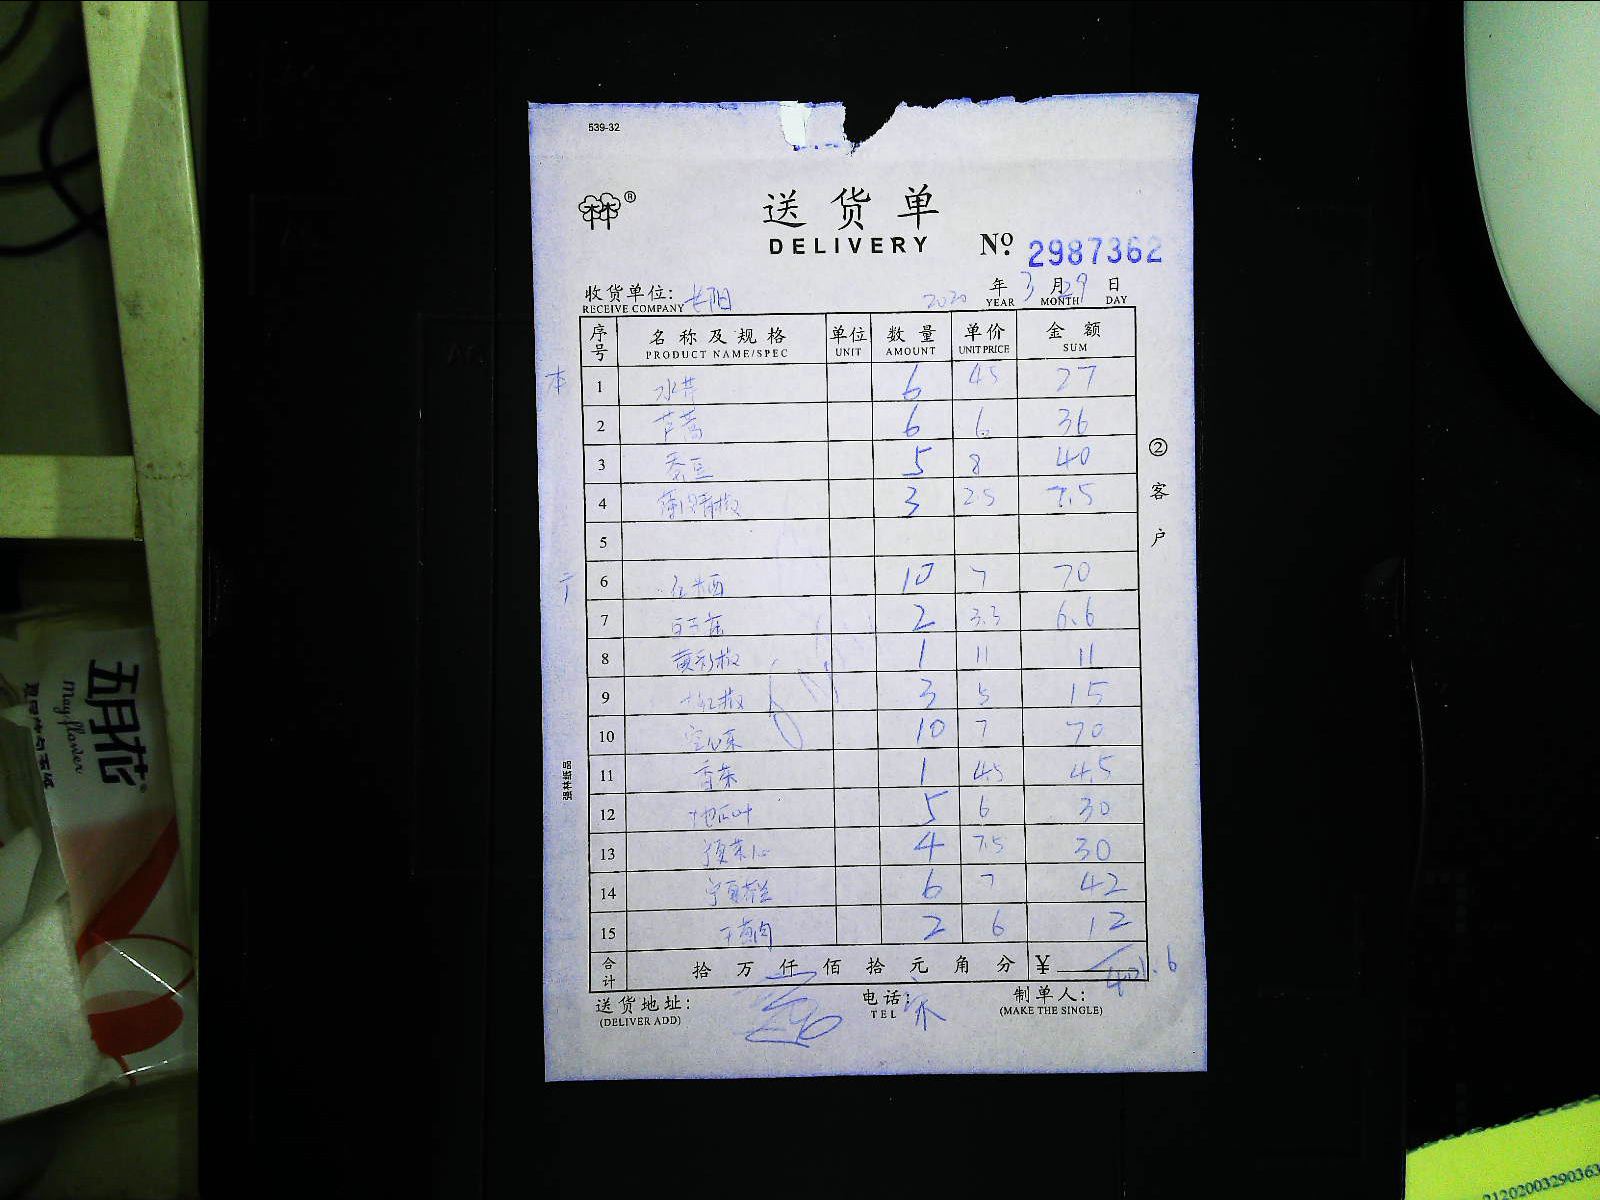 539-32
®
送货单
DELIVERY
№ 2987362
收货单位: 长阳
RECEIVE COMPANY
2020 年 3 月 29 日
YEAR MONTH DAY
序号 名称及规格 单位 数量 单价 金额
PRODUCT NAME/SPEC UNIT AMOUNT UNIT PRICE SUM
本 1 水芹 6 45 27
2 芦蒿 6 6. 36
3 蚕豆 5 8 40
4 薄肉青椒 3 25 7.5
5
6 10 7 70
7 2 3.3 6.6
8 黄彩椒 1 11 11
9 红椒 3 5 15
10 空心菜 10 7 70
11 香菜 1 45 4.5
12 地瓜叶 5 6 30
13 4 7.5 30
14 宁夏 6 7 42
15 干葱肉 2 6 12
合计 拾万仟佰拾元角分 ¥ 401.6
送货地址: 电话: 制单人:
(DELIVER ADD) TEL (MAKE THE SINGLE)
②客户
强林纸品
五月花®
May flower
21202003290363